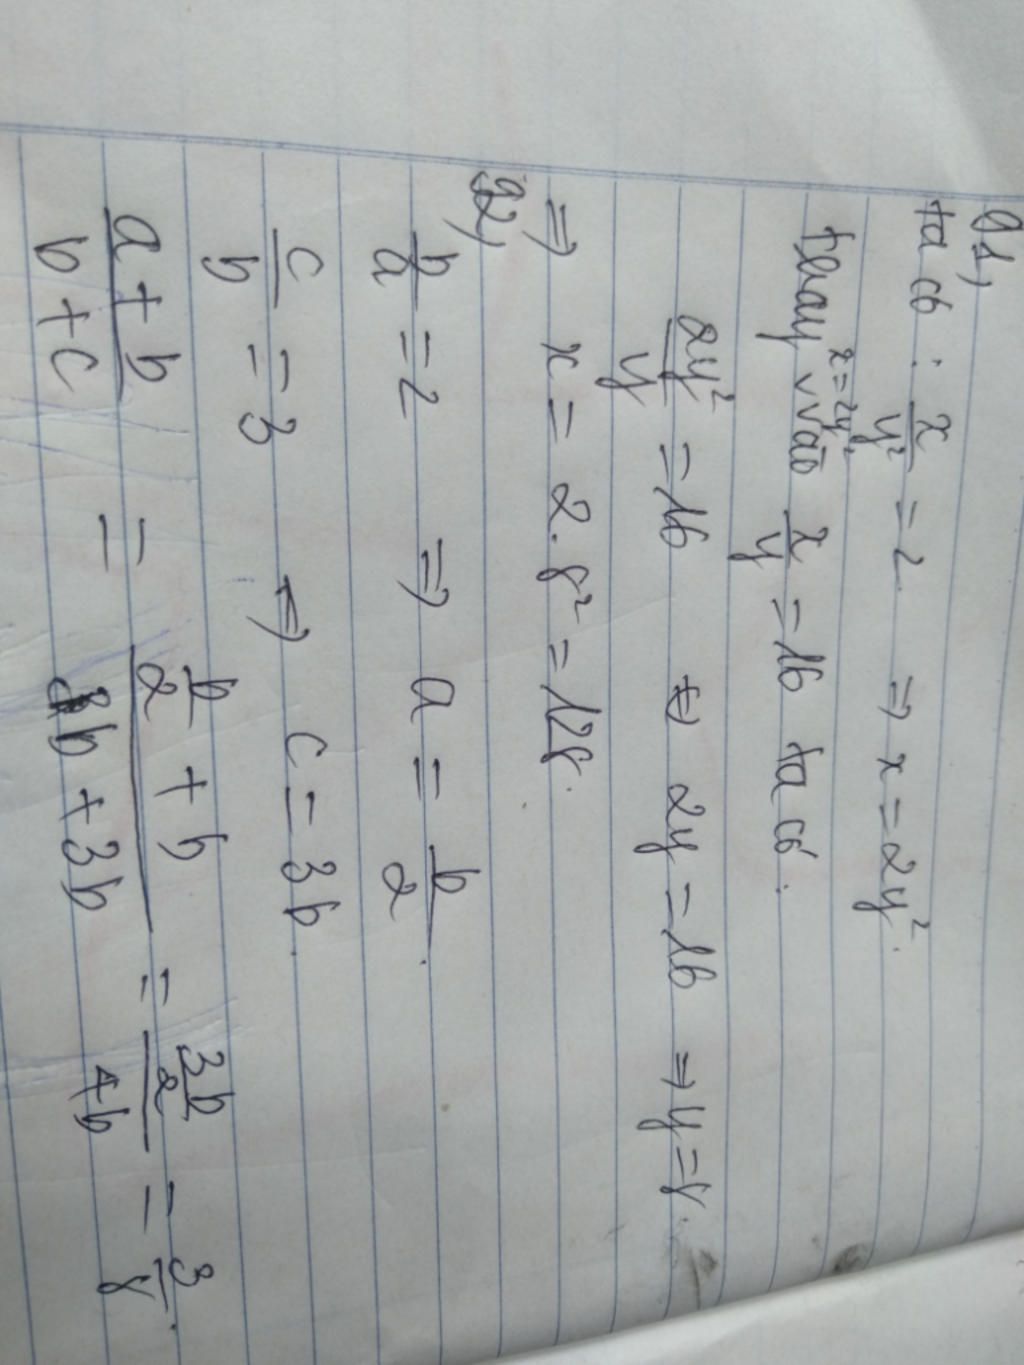 91,
ta có : x/y² = 2 => x = 2y².
thay x=2y² vào x/y = 16 ta có :
2y²/y = 16 <=> 2y = 16 => y = 8.
=> x = 2.8² = 128.
92,
b/a = 2 => a = b/2.
c/b = 3 => c = 3b.
(a + b)/(b + c) = (b/2 + b)/(b + 3b) = (3b/2)/(4b) = 3/8.